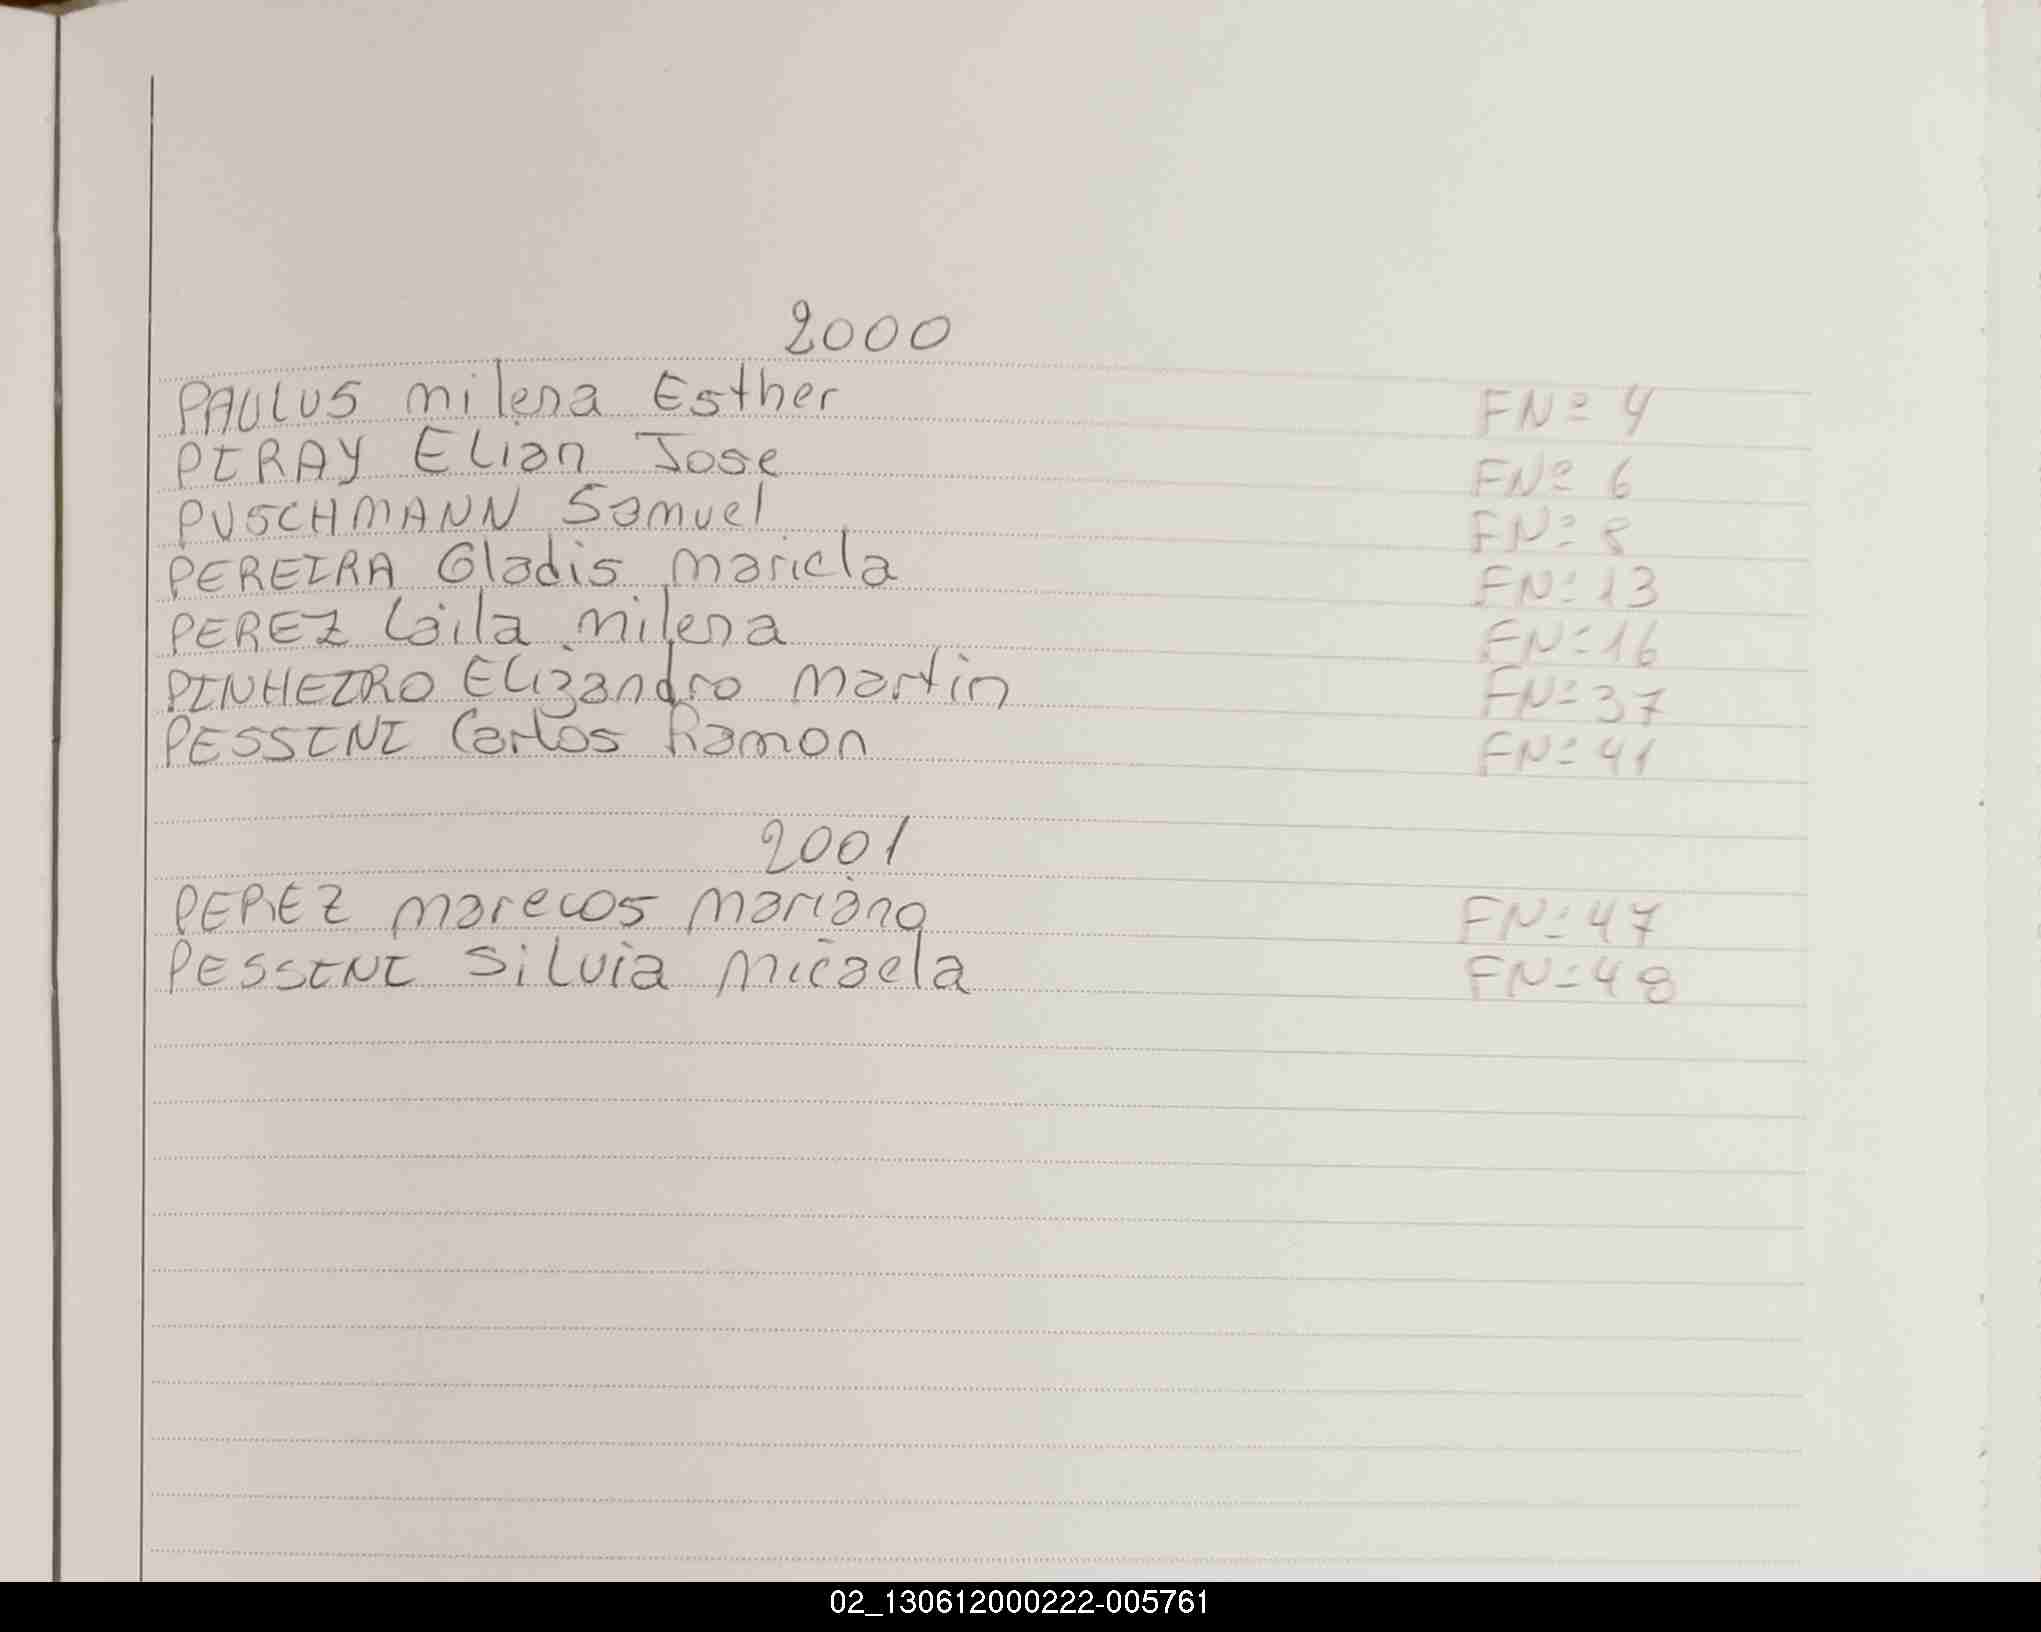 2000
PAULUS Milena Esther FNº 4
PIRAY Elian Jose FNº 6
PUSCHMANN Samuel FNº 8
PEREIRA Gladis Mariela FNº 13
PEREZ Laila Milena FNº 16
PINHEIRO Elizandro Martin FNº 37
PESSINI Carlos Ramon FNº 41
2001
PEREZ Marecos Mariano FNº 47
PESSINI Silvia Micaela FNº 48
02_130612000222-005761